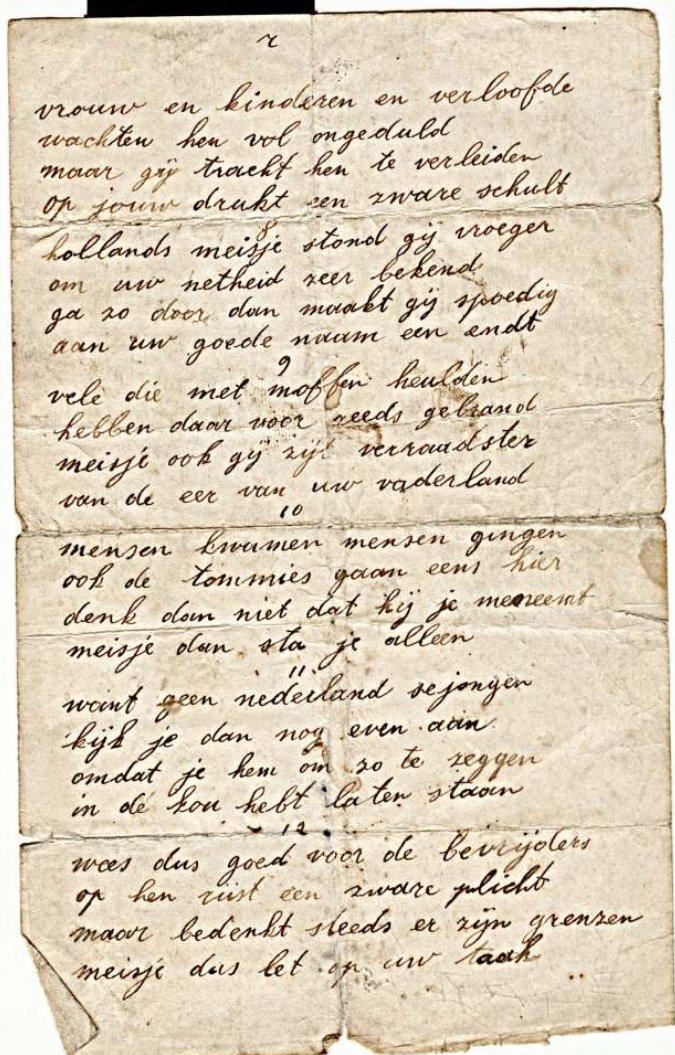 7
vrouw en kinderen en verloofde
wachten hen vol ongeduld
maar gij tracht hen te verleiden
op jouw drukt een zware schult
8
hollands meisje stond gij vroeger
om uw netheid zeer bekend
ga zo door dan maakt gij spoedig
aan uw goede naam een endt
9
vele die met moffen heulden
hebben daar voor reeds gebrand
meisje ook gij zijt verraadster
van de eer van uw vaderland
10
mensen kwamen mensen gingen
ook de tommies gaan eens hier
denk dan niet dat hij je meneemt
meisje dan sta je alleen
11
want geen nederland se jongen
kijk je dan nog even aan
omdat je hem om zo te zeggen
in de kou hebt laten staan
12
wees dus goed voor de bevrijders
op hen rust een zware plicht
maar bedenkt steeds er zijn grenzen
meisje dus let op uw taak